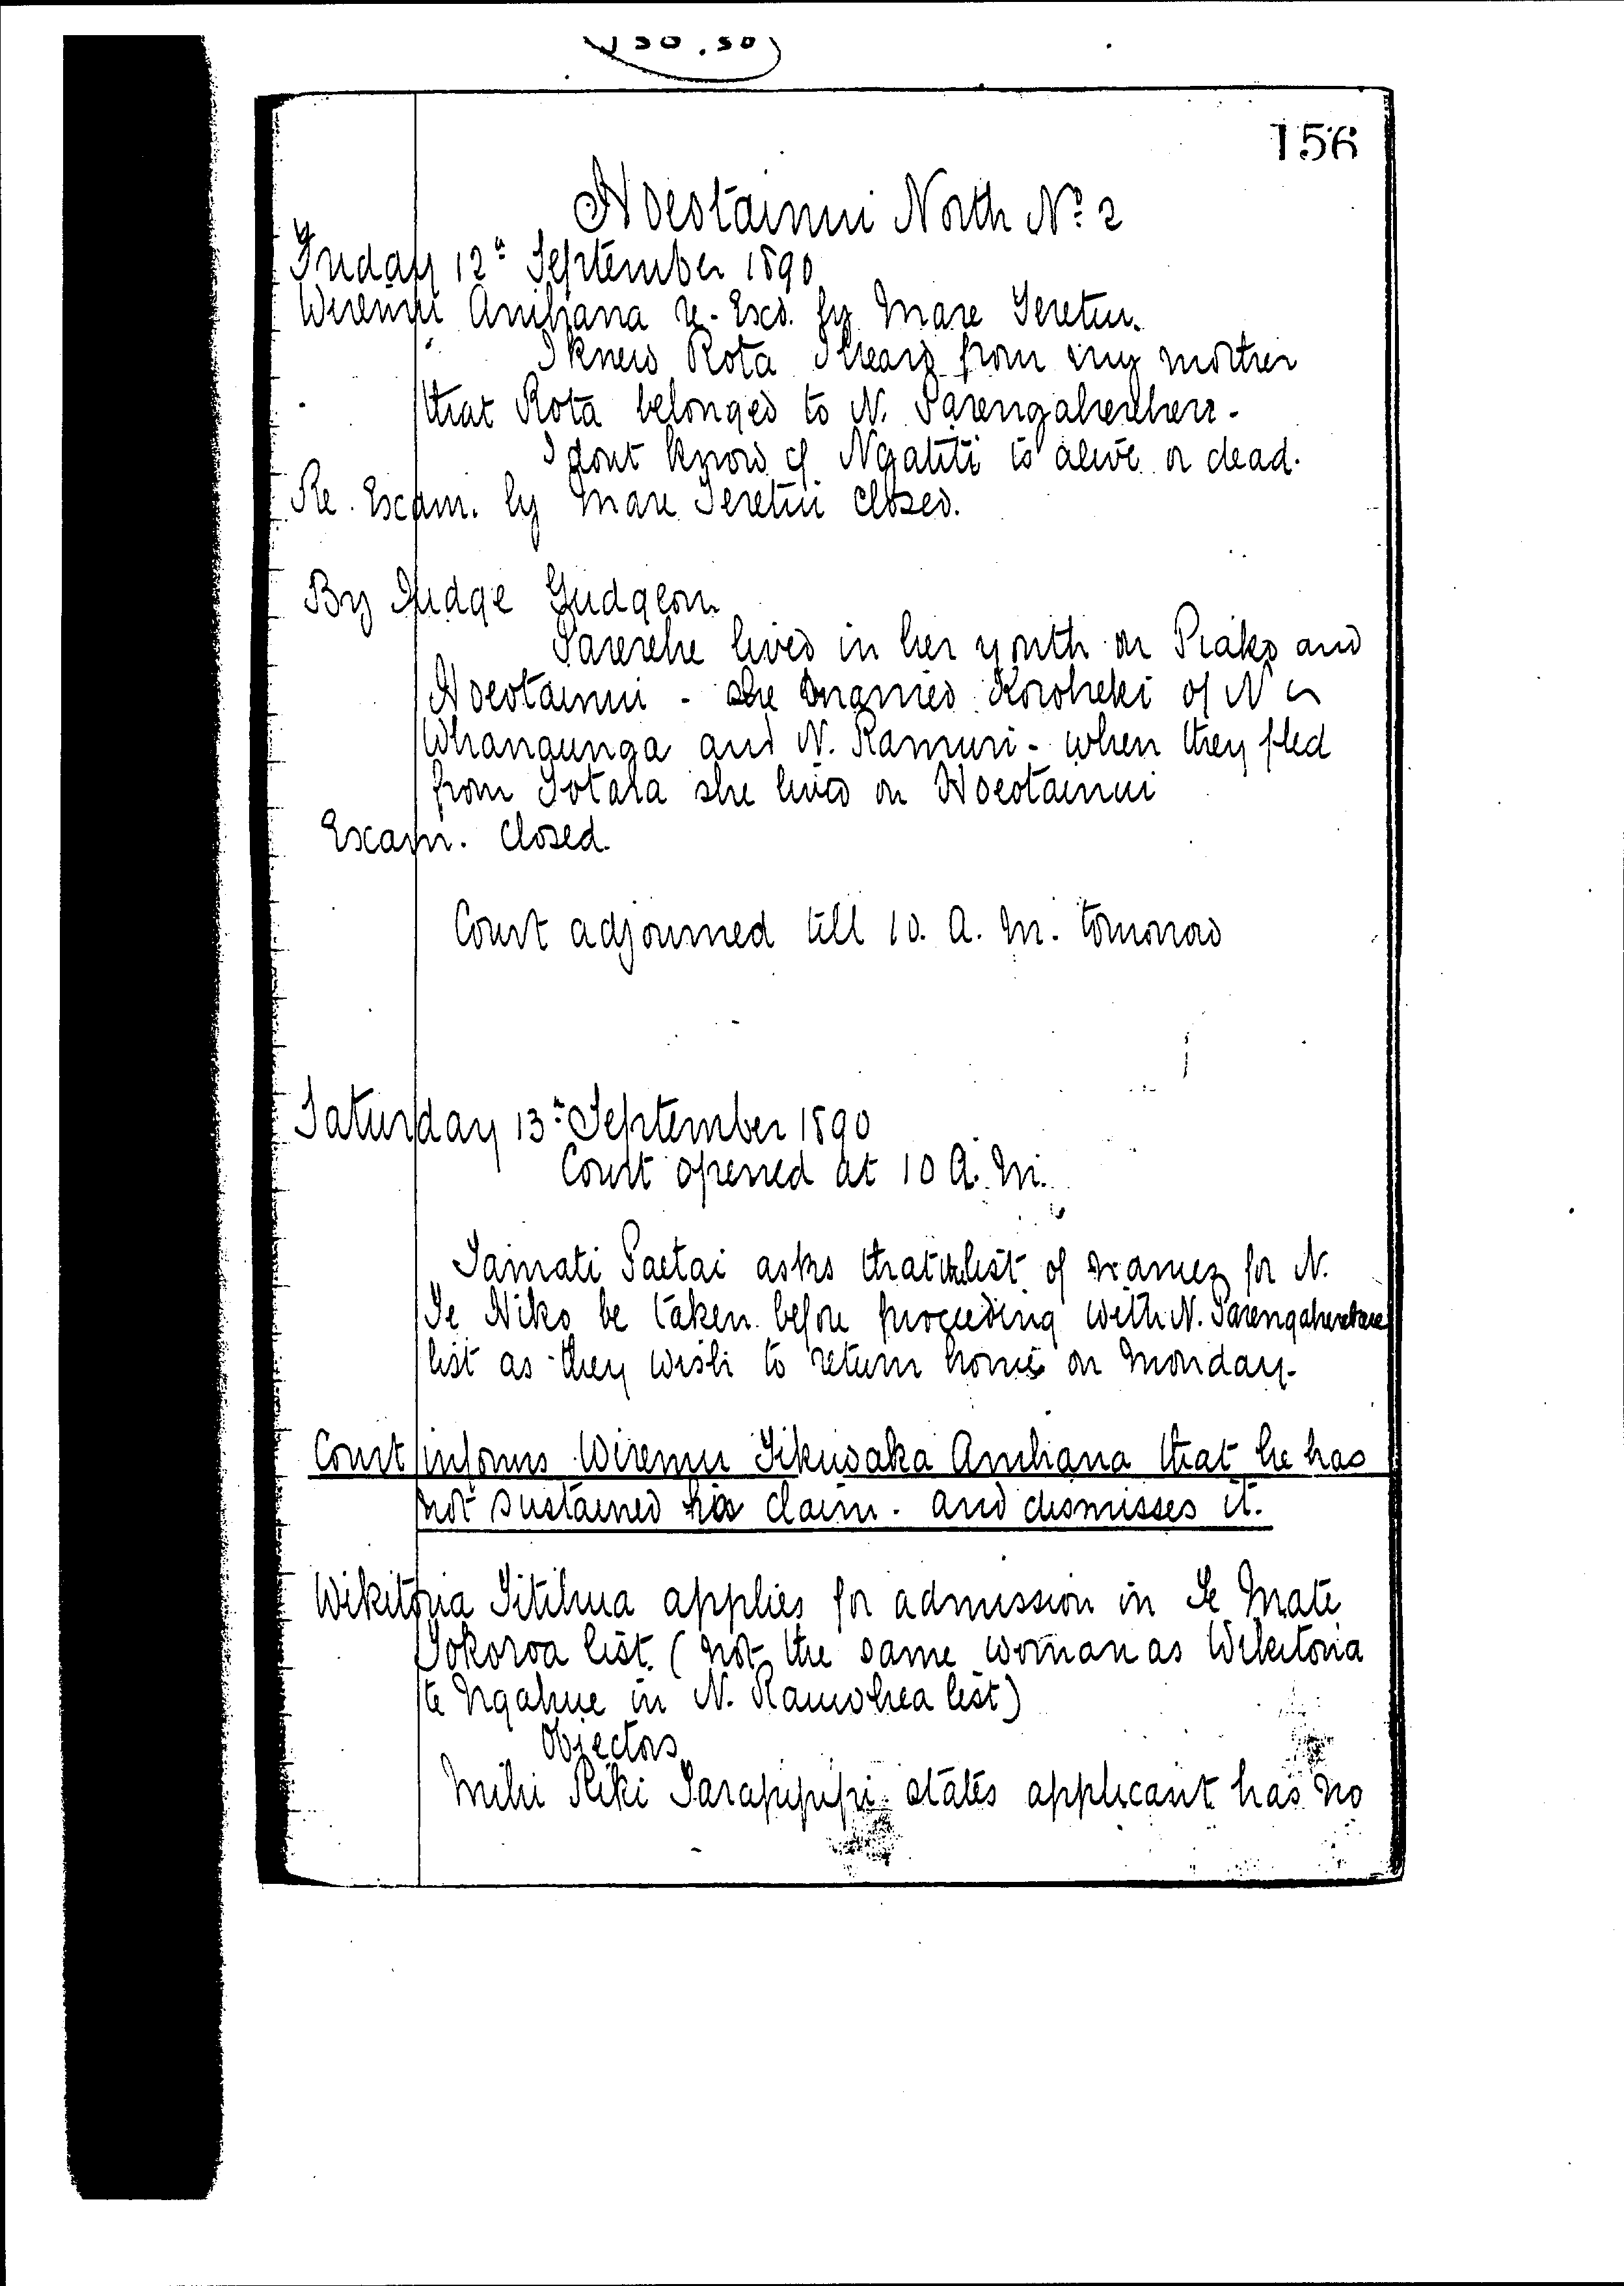 156
Hoeotainui North No. 2
Friday 12th September 1890
Wiremu Anihana re-Exd. by Mare Teretiu.
I knew Rota I heard from my mother
that Rota belonged to N. Parengaherehere -
I dont know if Ngatiti is alive or dead.
Re. Exam. by Mare Teretiu closed.
By Judge Gudgeon
Parerehe lived in her youth on Piako and
Hoeotainui - she married Koroheki of N
Whanaunga and N. Ramuri - when they fled
from Totara she lived on Hoeotainui
Exam. closed.
Court adjourned till 10. A. M. tomorrow
Saturday 13th September 1890
Court opened at 10 A. M.
Tamati Paetai asks that the list of names for N.
Te Hiko be taken before proceeding with N. Parengaherehere
list as they wish to return home on Monday.
Court informs Wiremu Tikuwaka Anihana that he has
not sustained his claim. and dismisses it.
Wikitoria Titihua applies for admission in Te Mate
Tokoroa list. (not the same woman as Wikitoria
te Ngahue in N. Rauwhea list)
Objectors
Mihi Riki Tarapipipi states applicant has no